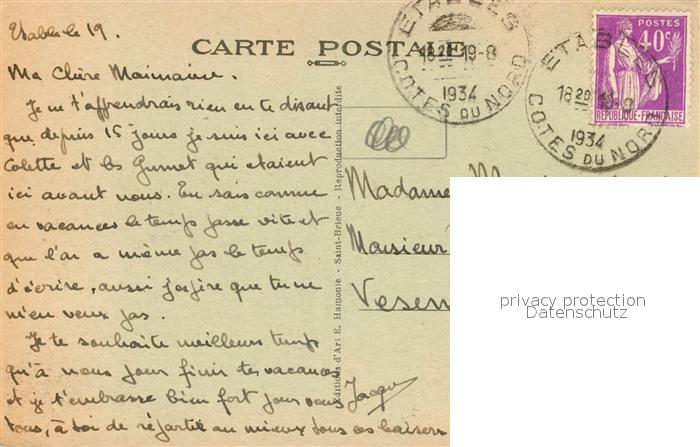 Etables le 19.
CARTE POSTALE
Ma Chère Mamaine.
Je ne t'apprendrais rien en te disant
que depuis 15 jours je suis ici avec
Colette et les Gumet qui etaient
ici avant nous. Tu sais comme
en vacances le temps passe vite et
que l'on a même pas le temps
d'écrire, aussi j'espère que tu ne
m'en veux pas.
Je te souhaite meilleurs temps
qu'à nous pour finir tes vacances
et je t'embrasse bien fort pour nous
tous, à toi de répartir au mieux tous ces baisers
Jacques
Editions d'Art E. Hamonic - Saint-Brieuc - Reproduction interdite
ETABLES
18 29 19-8
1934
COTES DU NORD
ETABLES
18 29 19-8
1934
COTES DU NORD
POSTES
40c
REPUBLIQUE FRANÇAISE
Madame
Monsieur
Vesen
privacy protection
Datenschutz